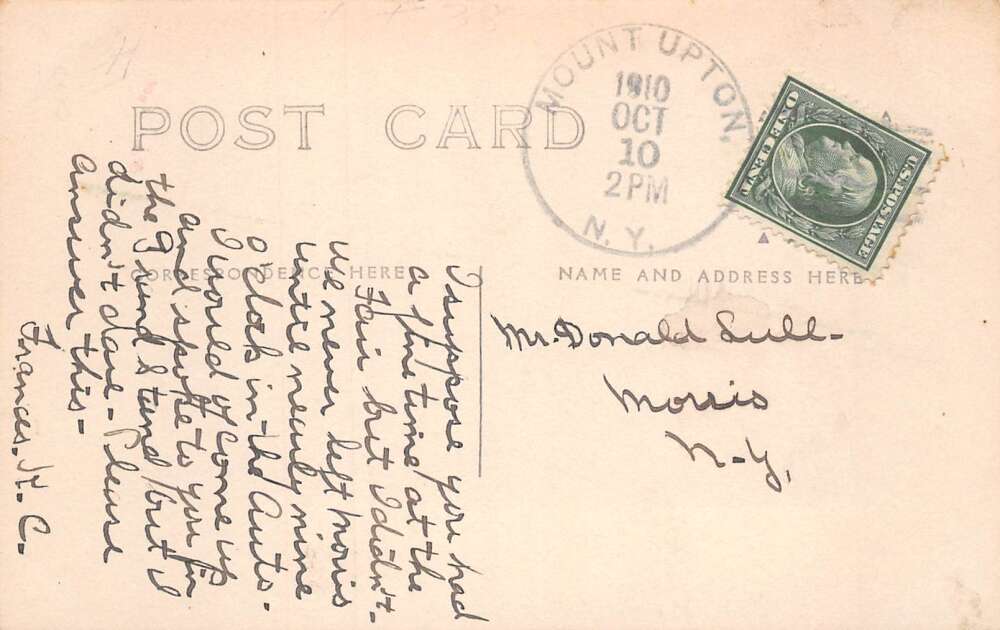 POST CARD
MOUNT UPTON, N.Y.
1910
OCT
10
2 PM
U.S. POSTAGE
ONE CENT
CORRESPONDENCE HERE
NAME AND ADDRESS HERE
Mr. Donald Lull-
Morris
N-Y.
I suppose you had
a fine time at the
Fair but I didn't-
we never left Morris
untre nearly nine
O'clock in-the Auto-
I would of come up
and spoke to you fin
the Grund Stund but I
didn't dare- Please
answer this-
Frances. H- C-